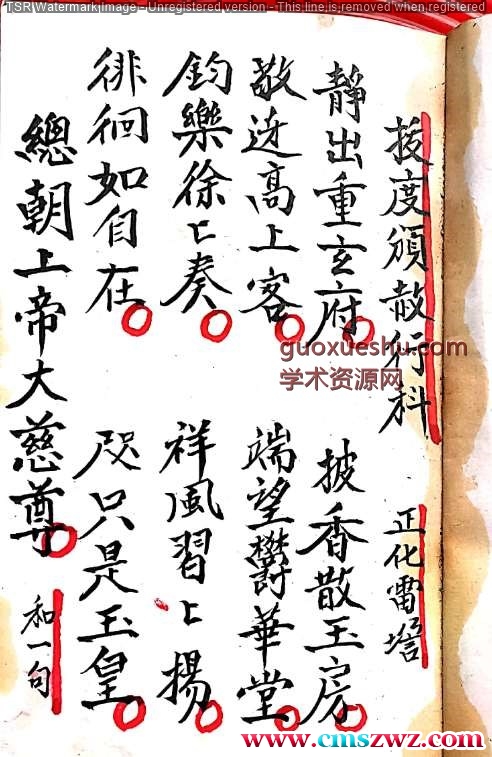 TSR Watermark Image - Unregistered version - This line is removed when registered
拔度頒赦行科　正化雷壇
靜出重玄府　披香散玉房
敬迓高上客　端望鬱華堂
鈞樂徐〻奏　祥風習〻揚
徘徊如自在　咫只是玉皇
總朝上帝大慈尊　和一句
guoxueshu.com
学术资源网
www.cmszwz.com